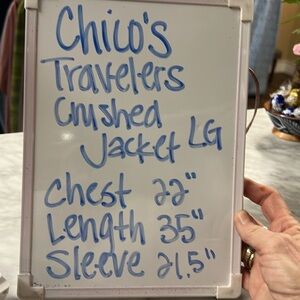 Chico's
Travelers
Crushed
Jacket LG
Chest 22"
Length 35"
Sleeve 21.5"